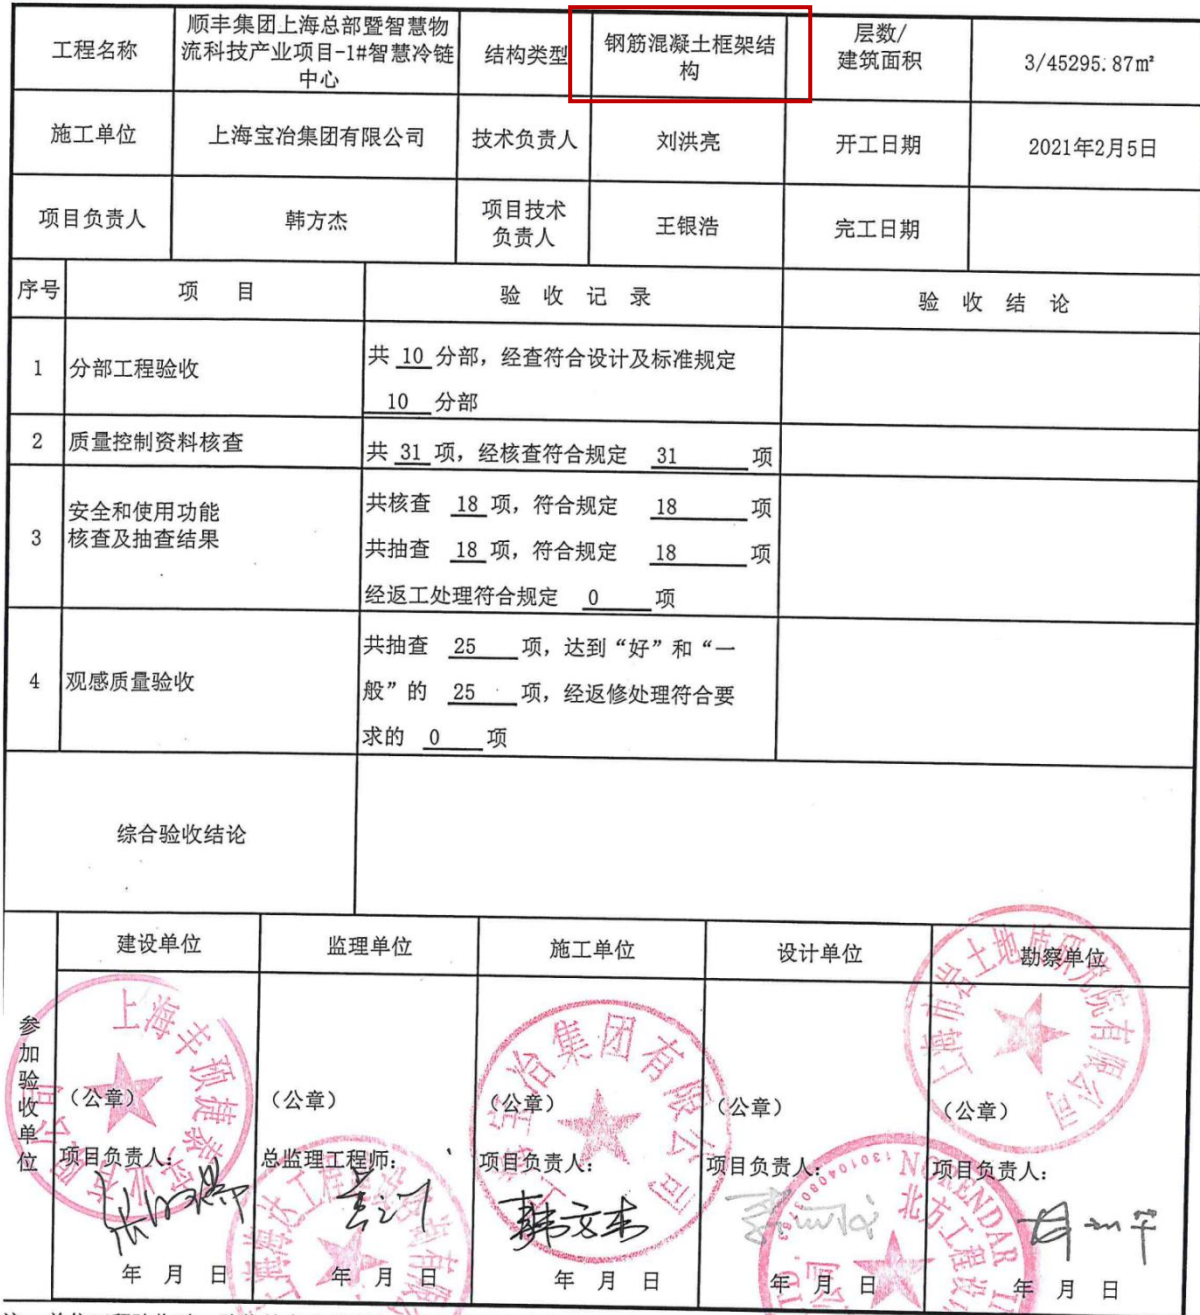 工程名称
顺丰集团上海总部暨智慧物
流科技产业项目-1#智慧冷链
中心
结构类型
钢筋混凝土框架结
构
层数/
建筑面积
3/45295.87m²
施工单位
上海宝冶集团有限公司
技术负责人
刘洪亮
开工日期
2021年2月5日
项目负责人
韩方杰
项目技术
负责人
王银浩
完工日期
序号
项 目
验 收 记 录
验 收 结 论
1
分部工程验收
共 10 分部，经查符合设计及标准规定
10 分部
2
质量控制资料核查
共 31 项，经核查符合规定 31 项
3
安全和使用功能
核查及抽查结果
共核查 18 项，符合规定 18 项
共抽查 18 项，符合规定 18 项
经返工处理符合规定 0 项
4
观感质量验收
共抽查 25 项，达到“好”和“一
般”的 25 项，经返修处理符合要
求的 0 项
综合验收结论
参加验收单位
建设单位
监理单位
施工单位
设计单位
勘察单位
（公章）
（公章）
（公章）
（公章）
（公章）
项目负责人：
总监理工程师：
项目负责人：
项目负责人：
项目负责人：
韩方杰
年 月 日
年 月 日
年 月 日
年 月 日
年 月 日
上海市岩土地质研究院有限公司
宝冶集团有限公司
北方工程设